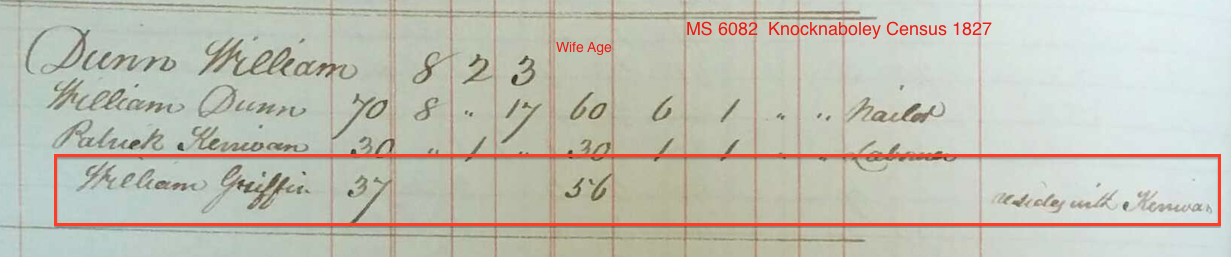 MS 6082 Knocknaboley Census 1827
Wife Age
Dunn William 8 2 3
William Dunn 70 8 " 17 60 6 1 " " Nailor
Patrick Kerwan 30 " 1 " 30 1 1 " " Labourer
William Griffin 37 56 resides with Kerwan